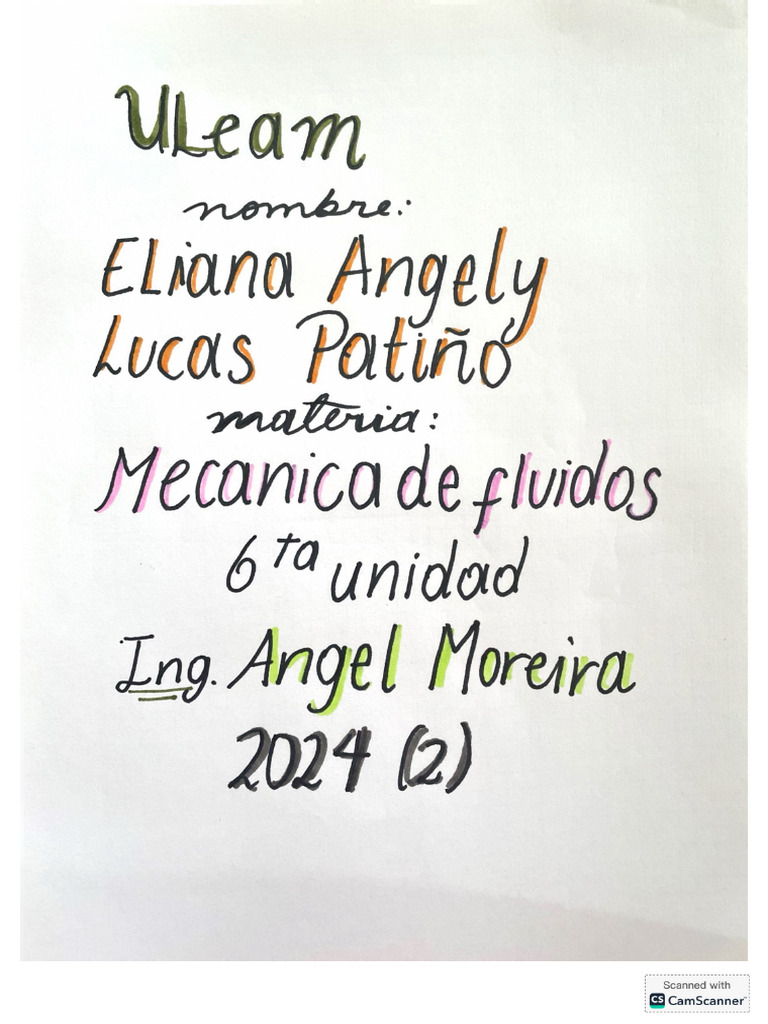 ULeam
nombre:
ELiana Angely
Lucas Patiño
materia:
Mecanica de fluidos
6ta unidad
Ing. Angel Moreira
2024 (2)
Scanned with
CS CamScanner